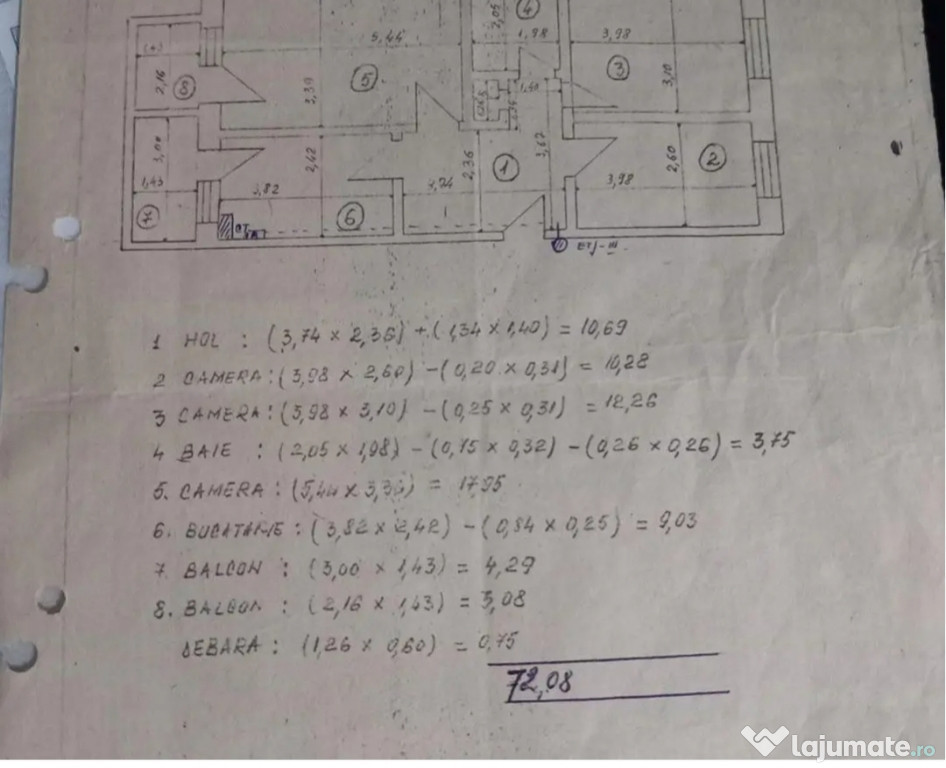 1,43
5,44
2,05
4
1,98
3,98
2,16
8
3,39
5
3
3,10
1,40
3,00
2,42
2,36
1
3,67
2,60
2
1,43
3,82
3,98
6
ETJ-III.
1 HOL : (3,74 x 2,36) + (1,34 x 1,40) = 10,69
2 CAMERA: (3,98 x 2,60) - (0,20 x 0,31) = 10,28
3 CAMERA: (3,98 x 3,10) - (0,25 x 0,31) = 12,26
4 BAIE : (2,05 x 1,98) - (0,15 x 0,32) - (0,26 x 0,26) = 3,75
5. CAMERA: (5,44 x 3,3) = 17,95
6. BUCATARIE: (3,82 x 2,42) - (0,84 x 0,25) = 9,03
7 BALCON : (3,00 x 1,43) = 4,29
8. BALCON : (2,16 x 1,43) = 3,08
DEBARA : (1,26 x 0,60) = 0,75
72,08
lajumate.ro